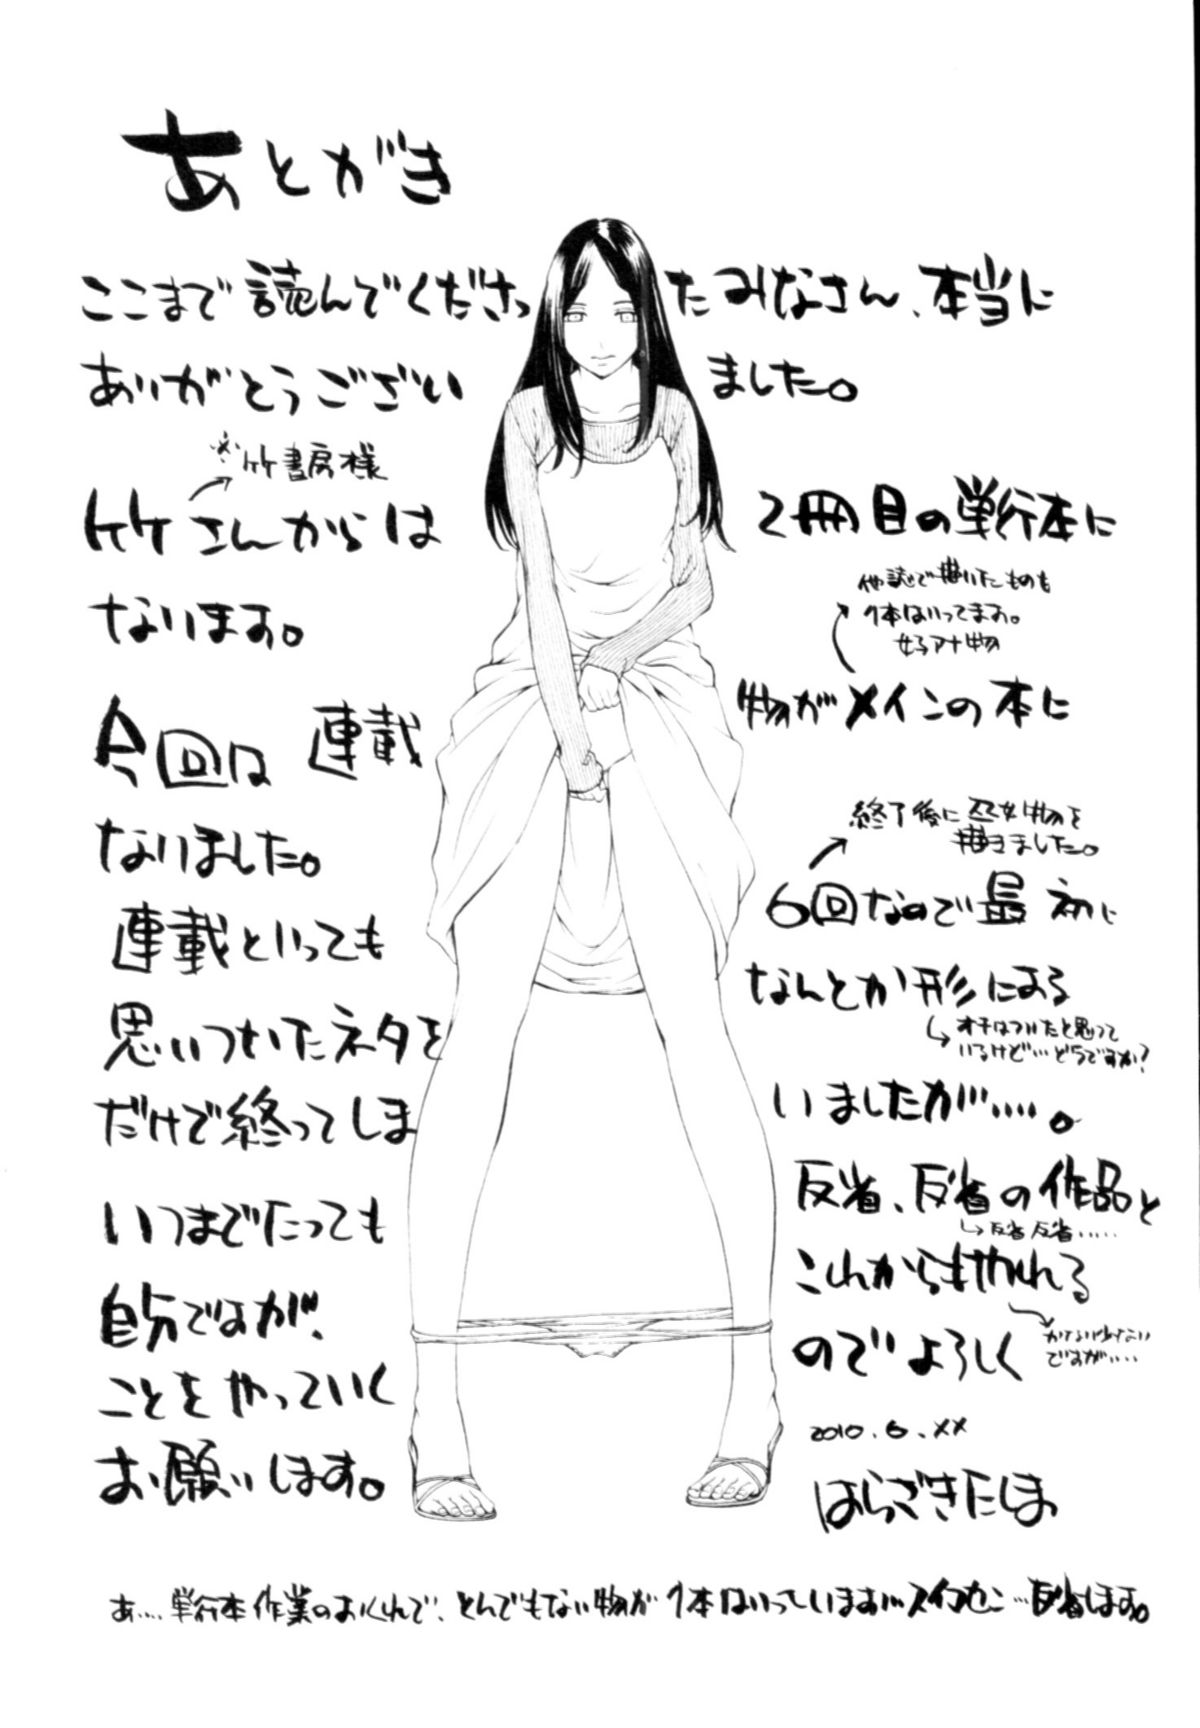 あとがき
ここまで読んでくださったみなさん、本当に
ありがとうございました。
※竹書房様
竹さんからは2冊目の単行本に
なります。
他誌で描いたものも
1本はいってます。
女子アナ物
今回は連載物がメインの本に
なりました。
終了後に巫女物を
描きました。
連載といっても6回なので最初に
思いついたネタをなんとか形にする
オチはついたと思って
いるけど…どうですか?
だけで終ってしまいましたが……。
いつまでたっても反省、反省の作品と
反省反省……
自分ですが、これからもやれる
かなり少ない
ですが……
ことをやっていくのでよろしく
お願いします。
2010.6.××
はらざきたくま
あ……単行本作業のおくれで、とんでもない物が1本はいっています…スイマセン…反省します。